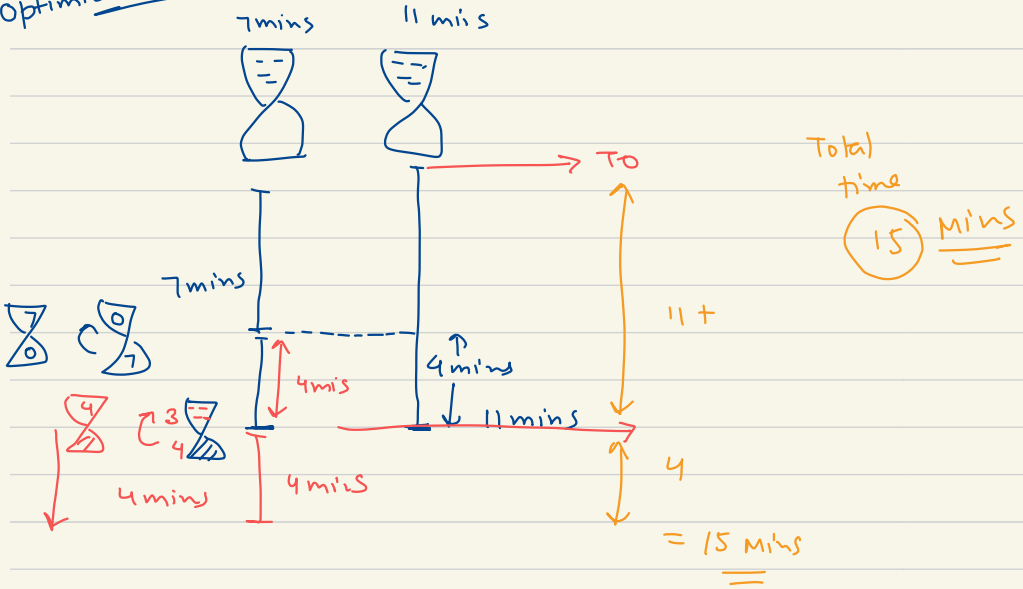 7mins
11 miis
TO
Total
time
15 Mins
7mins
11 +
7
0
0
7
4mins
4mis
11 mins
4
3
4
4
4mins
4mins
= 15 Mins